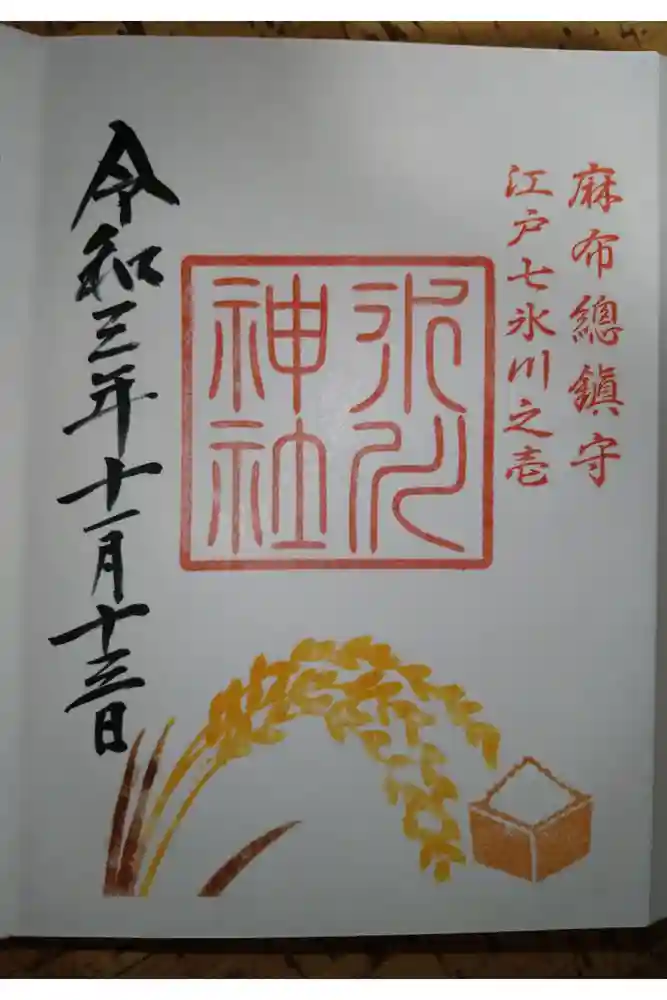 麻布總鎮守
江戸七氷川之壱
氷川
神社
令和三年十一月十三日